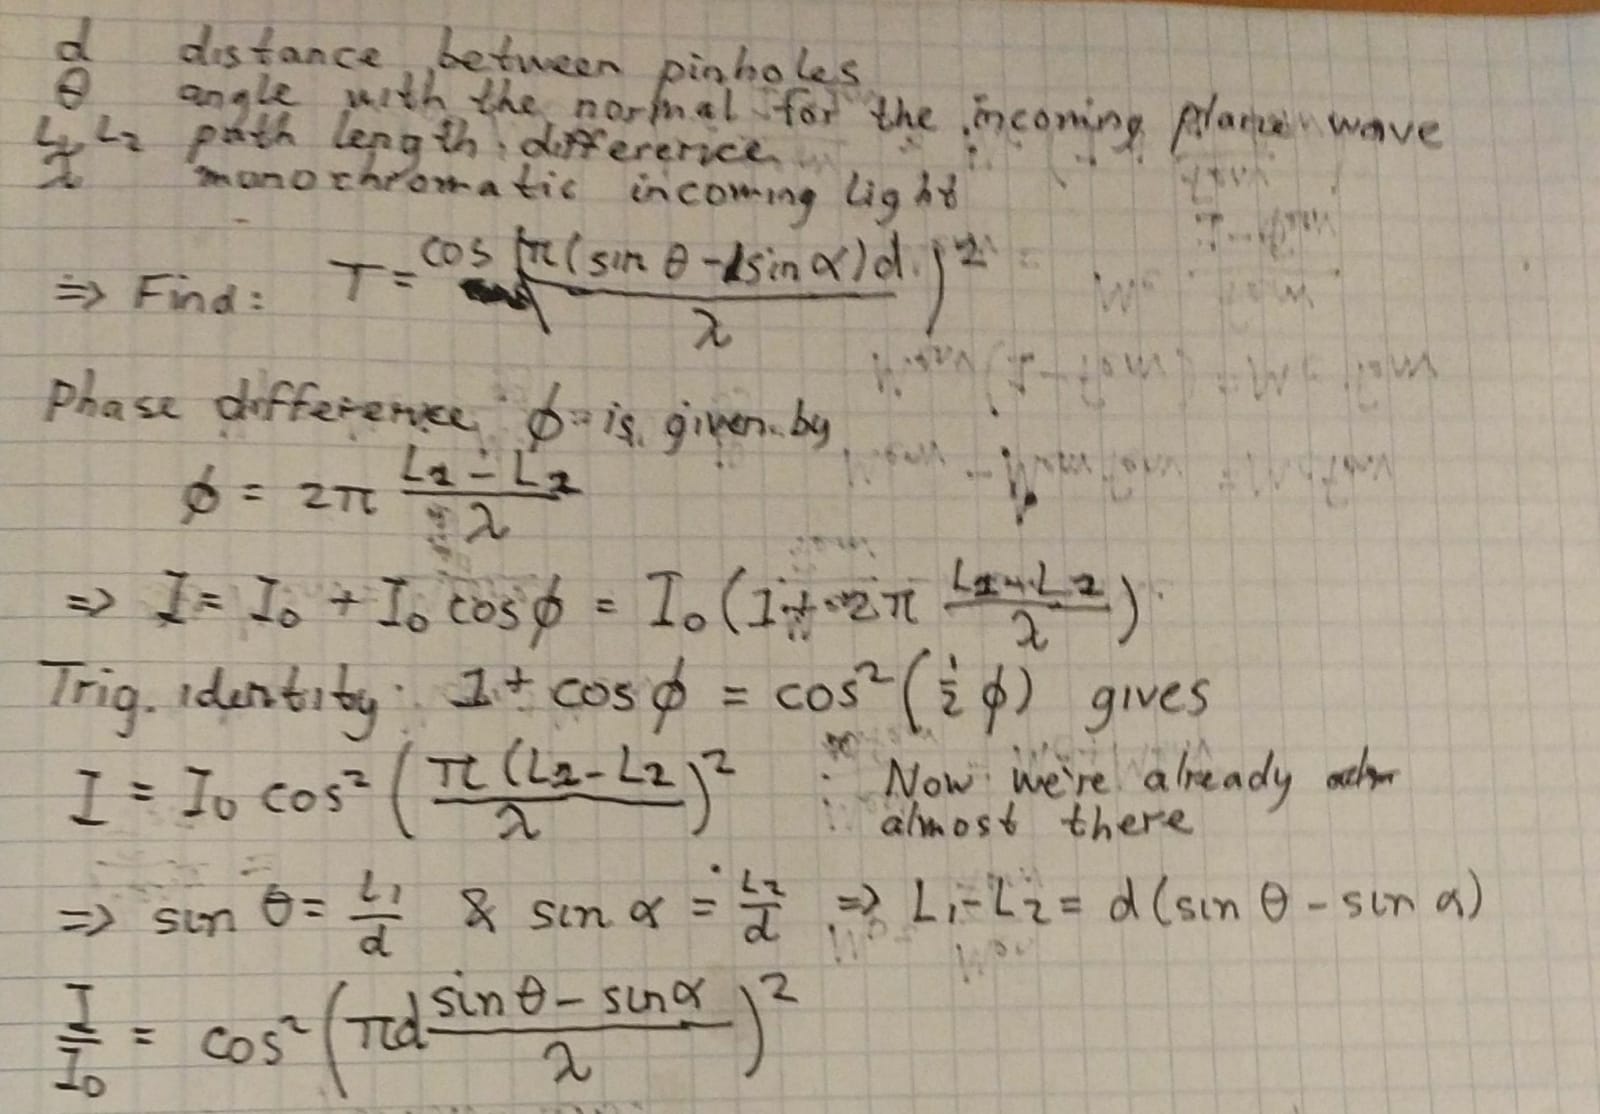 d distance between pinholes
θ angle with the normal for the incoming plane wave
L₁, L₂ path length difference
λ monochromatic incoming light
⇒ Find: T = cos (π(sin θ - sin α)d / λ)²
Phase difference φ is given by
φ = 2π (L₁ - L₂) / λ
⇒ I = I₀ + I₀ cos φ = I₀ (1 + 2π (L₁ - L₂) / λ)
Trig. identity: 1 + cos φ = cos² (½ φ) gives
I = I₀ cos² (π (L₁ - L₂) / λ)² Now we're already
almost there
⇒ sin θ = L₁ / d & sin α = L₂ / d ⇒ L₁ - L₂ = d (sin θ - sin α)
I / I₀ = cos² (πd (sin θ - sin α) / λ)²